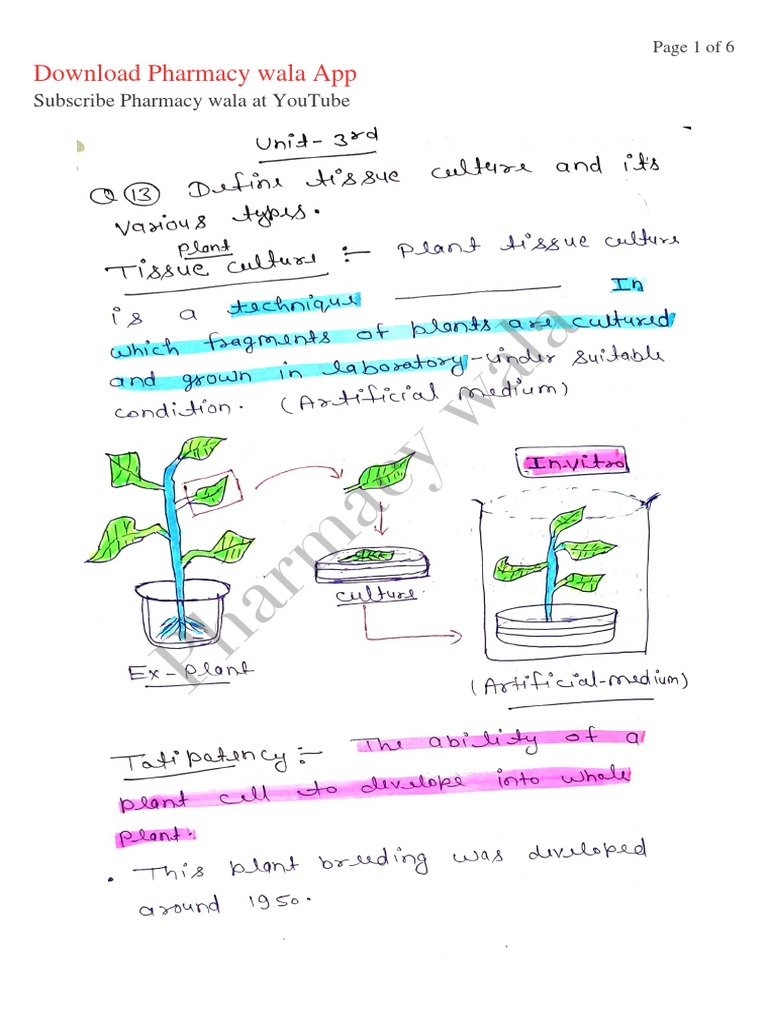 Page 1 of 6
Download Pharmacy wala App
Subscribe Pharmacy wala at YouTube
Unit-3rd
Q 13 Define tissue culture and it's
various types.
Plant
Tissue culture :- Plant tissue culture
is a technique ________ In
which fragments of plants are cultured
and grown in laboratory-under suitable
condition. (Artificial medium)
In-vitro
culture.
Ex-Plant
(Artificial-medium)
Totipatency :- The ability of a
plant cell to develope into whole
plant.
• This plant breeding was developed
around 1950.
Pharmacy wala